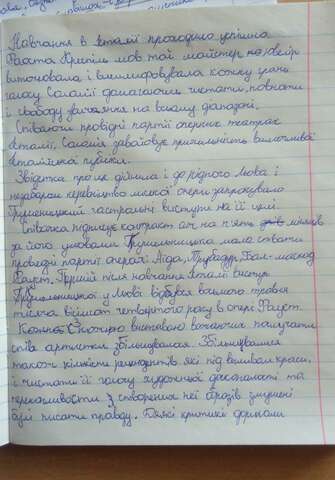 Навчання в Італії проходило успішно
Фауста Креспі мов той майстер ювелір
виточовала і вишліфовувала кожну грань
голосу Соломії домагаючись чистоти, повноти
й свободу звучання на всьому діапазоні.
Співаючи провідні партії оперних театрах
Італії, Соломія завойовує прихильність вимогливої
італійської публіки.
Звідтка про це дійшла і до рідного Львова і
незабаром керівництво міської опери запросувало
Крушеницькій гастрольні виступи на її сцені.
Співачка підписує контракт аж на п'ять місяців
за його умовами Крушельницька мала співати
провідні партії операх Аїда, Трубадур, Бал-маскарад
Фауст. Перший після навчання Італії виступ
Крушельницької у Львові відбувся восьмого травня
тисяча вісімсот четвертого року в опері Фауст.
Кожною виставою бажаючих послухати
спів артистки збільшувалося. Збільшувалися
також кількість рецензентів які під впливом краси
і чистоти її голосу художньої досконалості та
переконливости створених неї образів змушені
були писати правду. Деякі критики дорікали